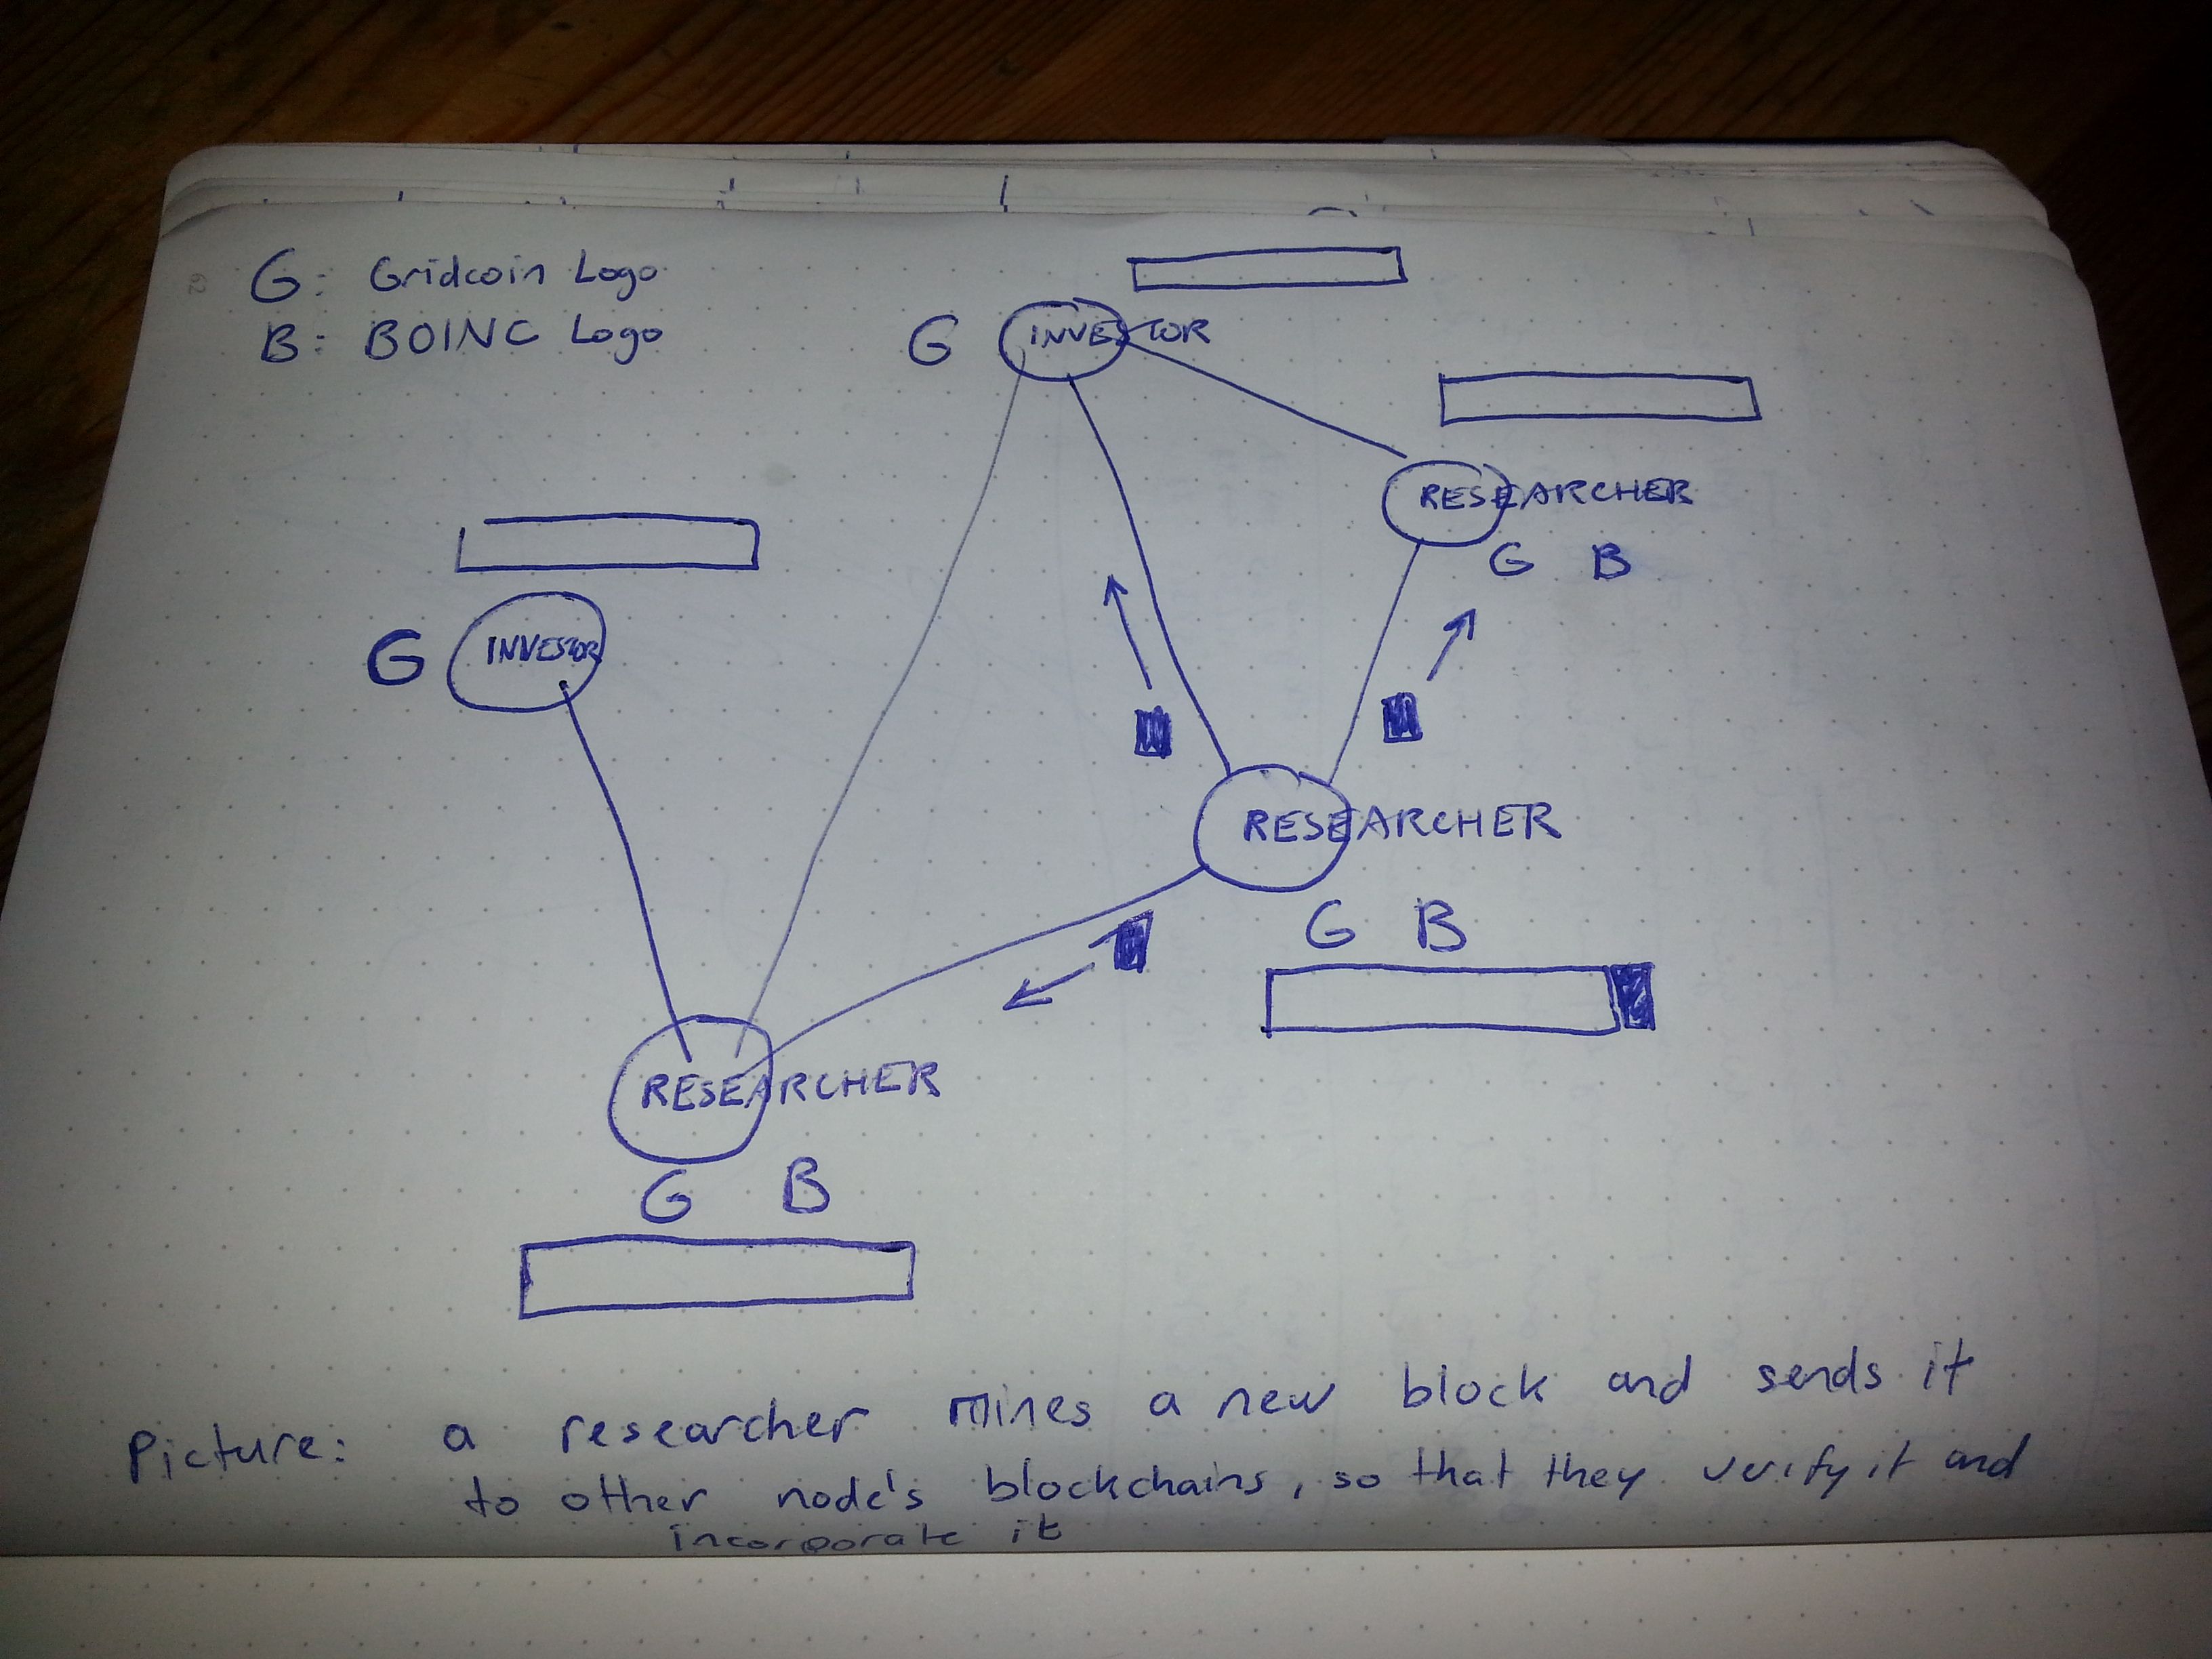 G: Gridcoin Logo
B: BOINC Logo
G INVESTOR
RESEARCHER
G B
G INVESTOR
RESEARCHER
G B
RESEARCHER
G B
Picture: a researcher mines a new block and sends it
to other node's blockchains, so that they verify it and
incorporate it